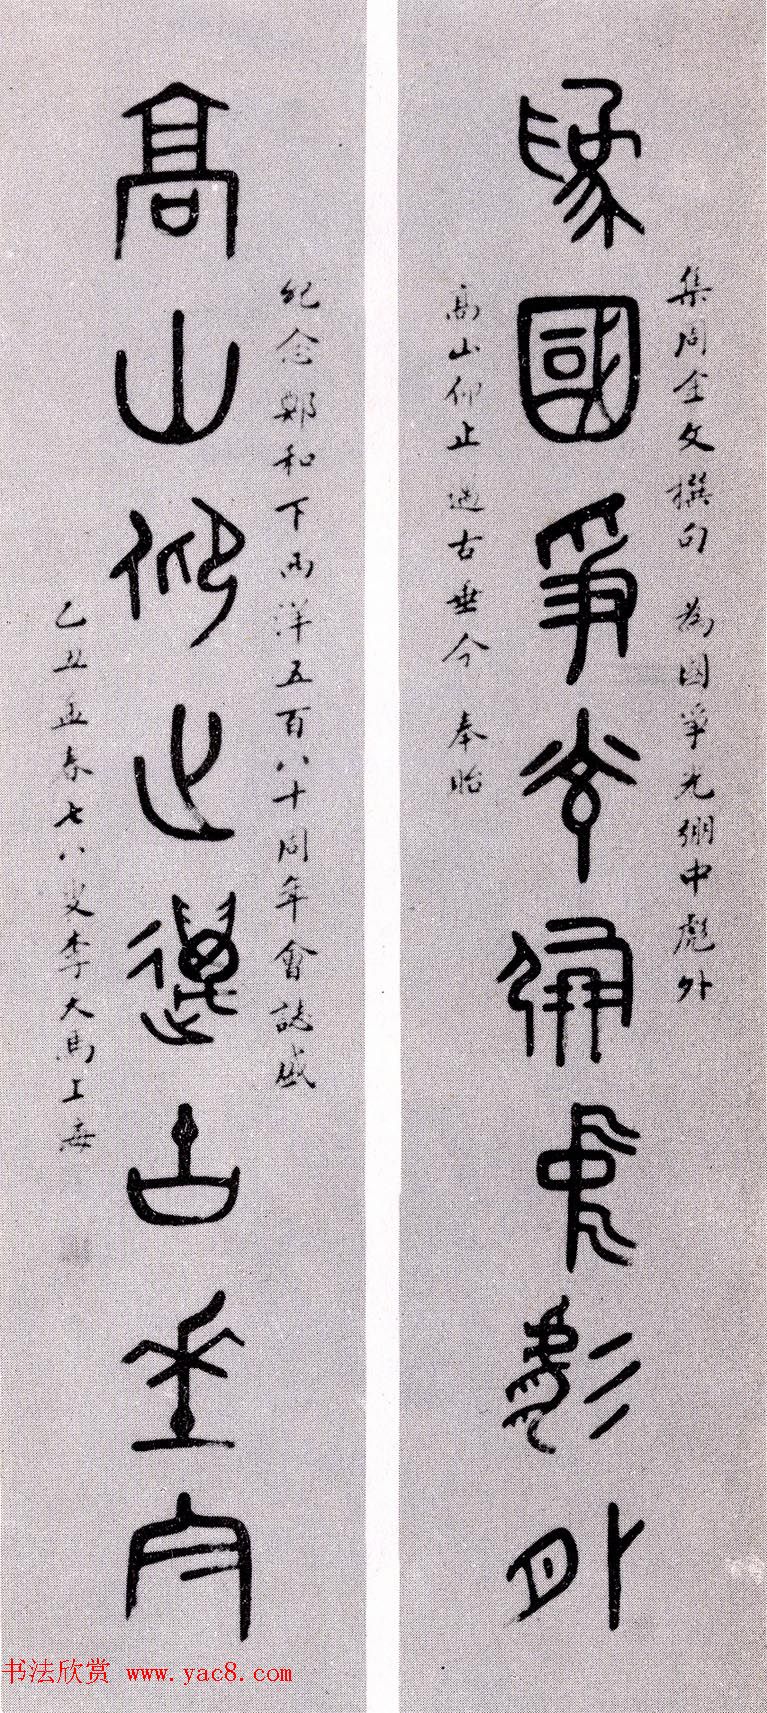 為國爭光弸中彪外
集周金文撰句 為國爭光弸中彪外
高山仰止邁古垂今 奉貽
高山仰止邁古垂今
紀念鄭和下西洋五百八十周年會誌盛
乙丑孟春七八叟李天馬上海
书法欣赏 www.yac8.com